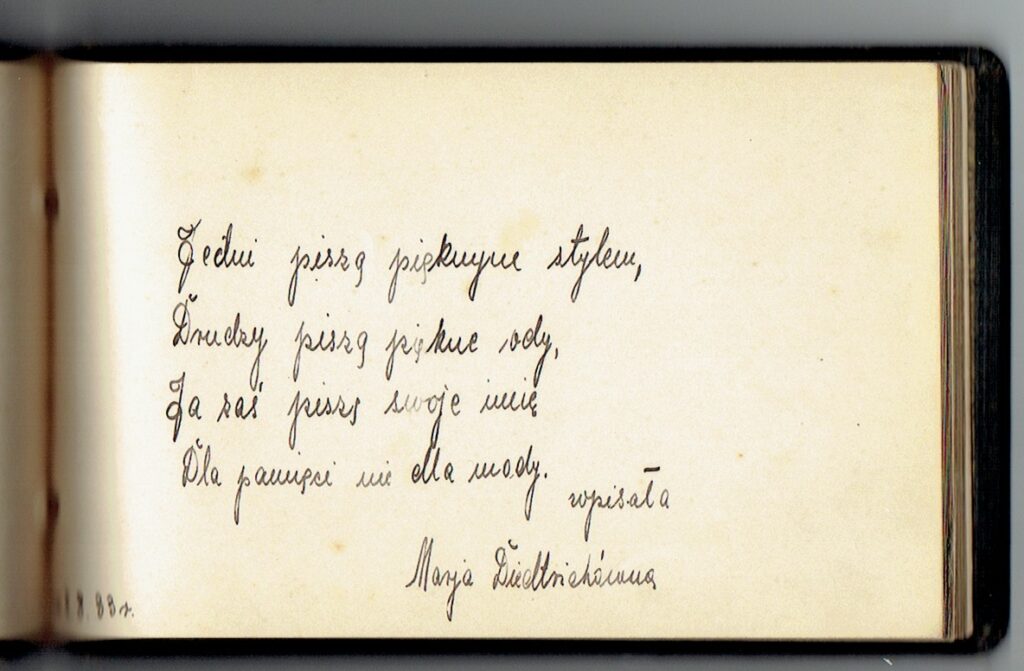 Jedni piszą pięknym stylem,
Drudzy piszą piękne ody,
Ja zaś piszę swoje imię
Dla pamięci nie dla mody.
wpisała
Marja Diedtrichówna
8. 33 r.